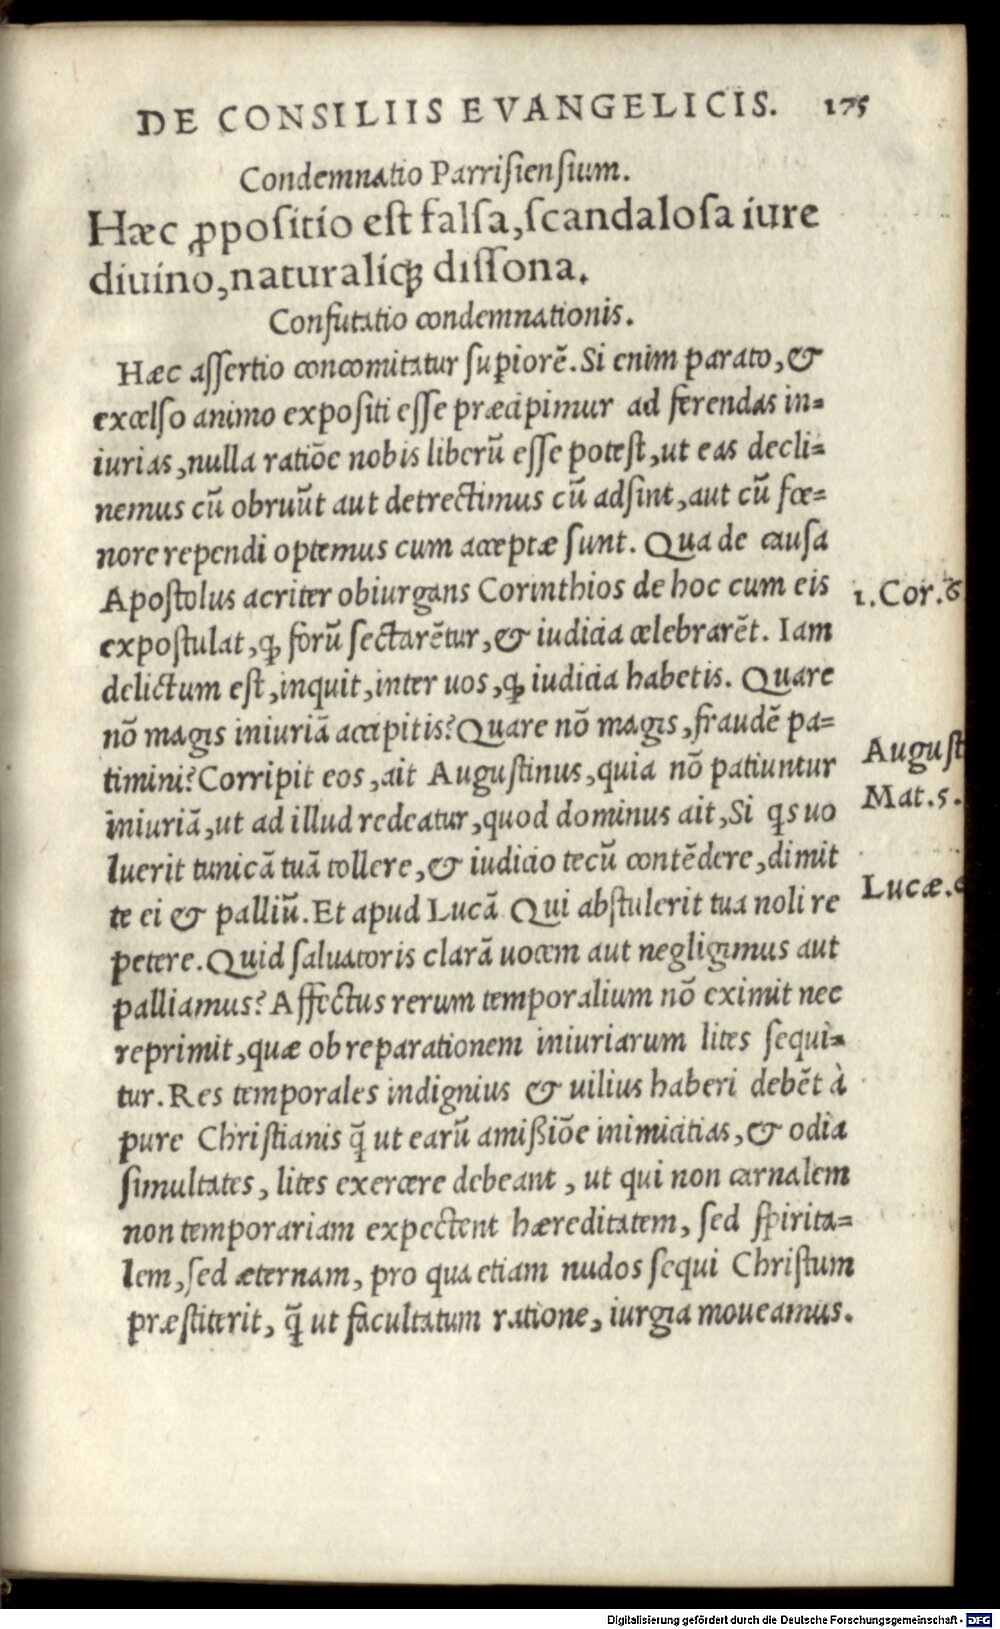 DE CONSILIIS EVANGELICIS. 175
Condemnatio Parrisiensium.
Hæc ꝓpositio est falsa, scandalosa iure
diuino, naturaliqꝫ dissona.
Confutatio condemnationis.
Hæc assertio concomitatur supiorē. Si enim parato, &
excelso animo expositi esse præcipimur ad ferendas in=
iurias, nulla ratiōe nobis liberū esse potest, ut eas decli=
nemus cū obruūt aut detrectimus cū adsint, aut cū fœ=
nore rependi optemus cum acceptæ sunt. Qua de causa
Apostolus acriter obiurgans Corinthios de hoc cum eis
1. Cor. 6
expostulat, ꝙ forū sectarētur, & iudicia celebrarēt. Iam
delictum est, inquit, inter uos, ꝙ iudicia habetis. Quare
nō magis iniuriā accipitis? Quare nō magis, fraudē pa=
timini? Corripit eos, ait Augustinus, quia nō patiuntur
August
iniuriā, ut ad illud redeatur, quod dominus ait, Si qs uo
Mat. 5.
luerit tunicā tuā tollere, & iudicio tecū contēdere, dimit
te ei & palliū. Et apud Lucā Qui abstulerit tua noli re
Lucæ.
petere. Quid saluatoris clarā uocem aut negligimus aut
palliamus? Affectus rerum temporalium nō eximit nec
reprimit, quæ ob reparationem iniuriarum lites sequi=
tur. Res temporales indignius & uilius haberi debēt à
pure Christianis q̄ ut earū amißiōe inimicitias, & odia
simultates, lites exercere debeant, ut qui non carnalem
non temporariam expectent hæreditatem, sed spirita=
lem, sed æternam, pro qua etiam nudos sequi Christum
præstiterit, q̄ ut facultatum ratione, iurgia moueamus.
Digitalisierung gefördert durch die Deutsche Forschungsgemeinschaft - DFG